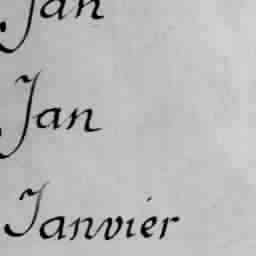 Jan
Jan
Janvier